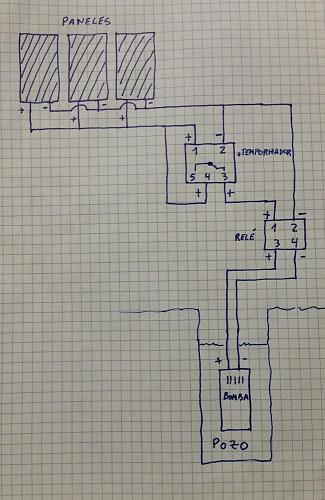 PANELES
+ - + - + -
+ -
1 2
TEMPORIZADOR
5 4 3
+ +
+ -
1 2
RELÉ
3 4
+ -
+ -
BOMBA
POZO